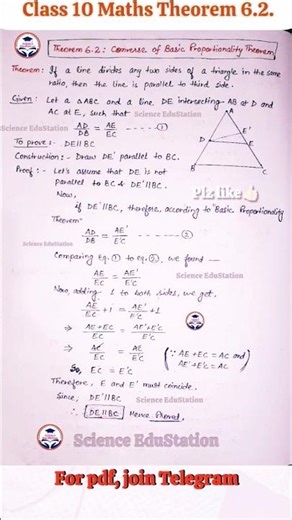 Class 10 Maths Theorem 6.2.
Theorem 6.2 : Converse of Basic Proportionality Theorem
Theorem : If a line divides any two sides of a triangle in the same
ratio, then the line is parallel to third side.
Given : Let a △ABC and a line DE intersecting AB at D and
AC at E, such that
Science EduStation
AD/DB = AE/EC ------ ①
To prove :- DE||BC
Construction :- Draw DE' parallel to BC.
Proof :- Let's assume that DE is not
parallel to BC & DE'||BC.
Now,
If DE'||BC, therefore, according to "Basic Proportionality
Theorem"
AD/DB = AE'/E'C ------ ②
Comparing Eq. ① to eq. ②, we found —
AE/EC = AE'/E'C
Science EduStation
Now, adding 1 to both sides, we get,
AE/EC + 1 = AE'/E'C + 1
⇒ AE+EC/EC = AE'+E'C/E'C
⇒ AC/EC = AC/E'C (∵ AE+EC = AC and
AE'+E'C = AC)
So, EC = E'C
Therefore, E and E' must coincide.
Since, DE'||BC
Science EduStation
∴ DE||BC Hence Proved.
A
D
E'
E
B
C
Science EduStation
Plz like 👍🏻
Science EduStation
For pdf, join Telegram